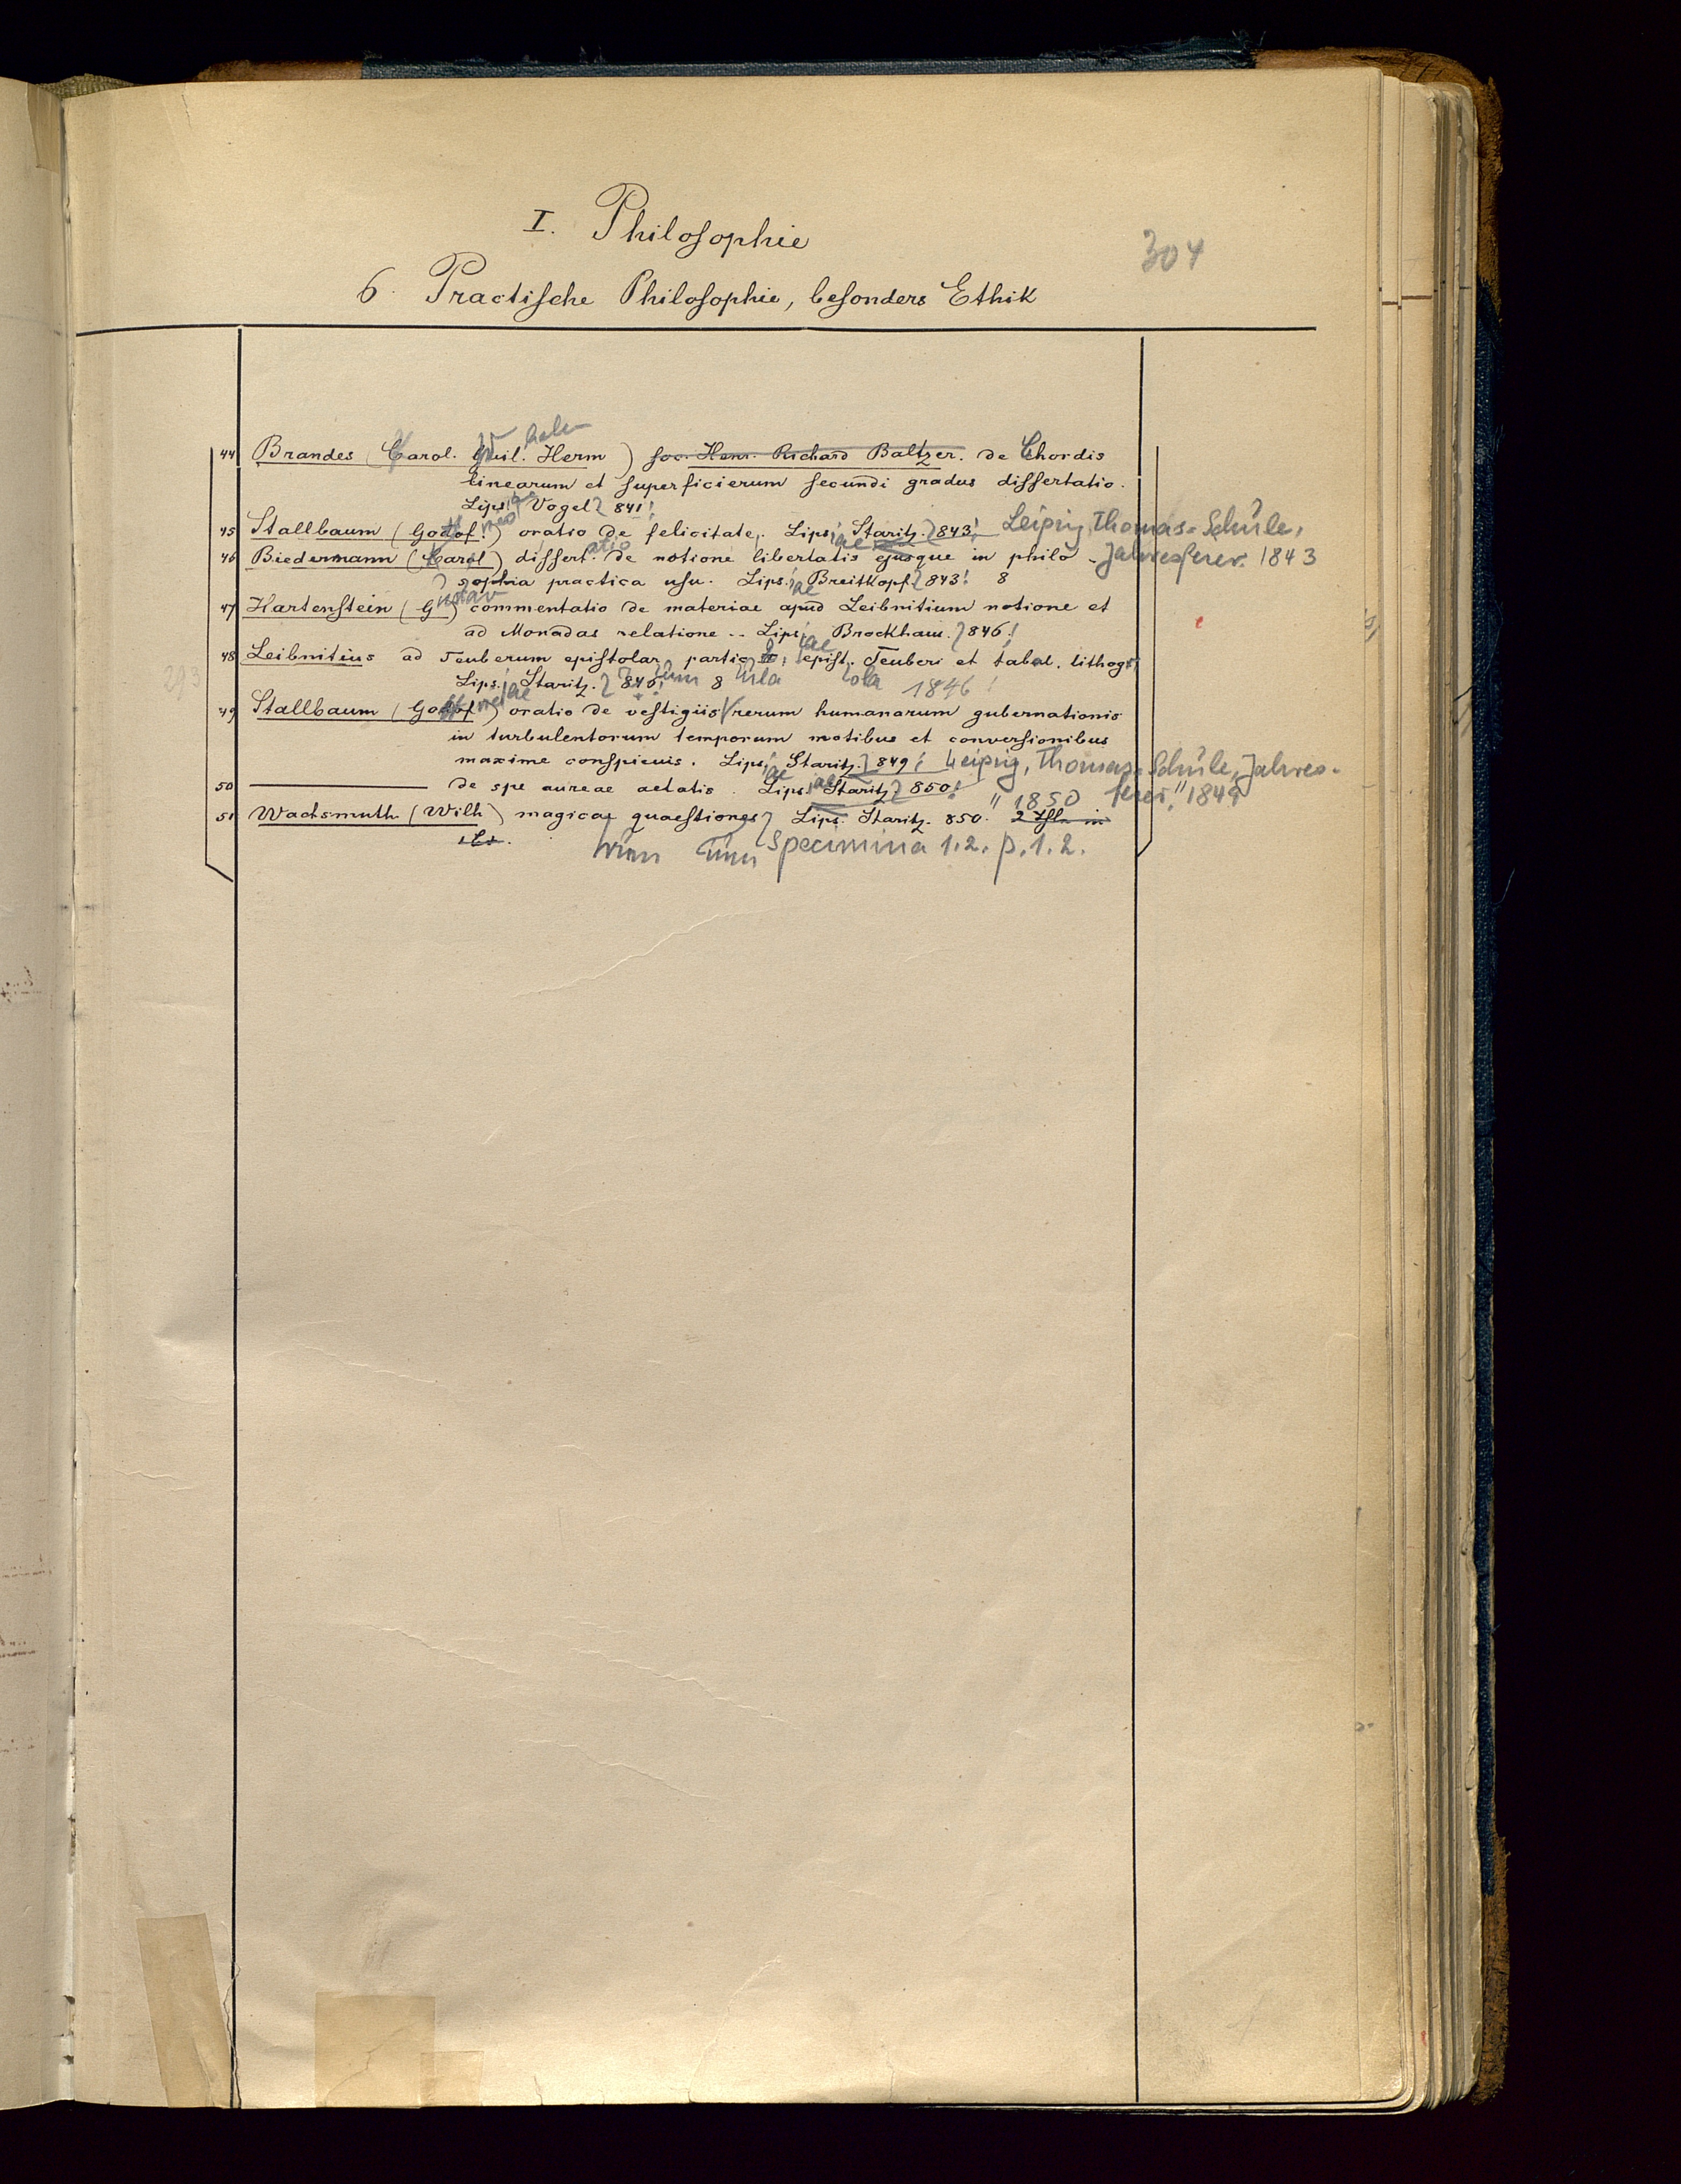 I. Philosophie
304
6. Practische Philosophie, besonders Ethik
44 Brandes (Carol. Guil. Herm) soc. Henr. Richard Baltzer. de Chordis
linearum et superficierum secundi gradus dissertatio.
Lips. Vogel 841.
45 Stallbaum (Godof.) oratio de felicitate. Lips. Staritz. 843. Leipzig, Thomas-Schule,
46 Biedermann (Carol) dissert. de notione libertatis ejusque in philo- Jahresber. 1843
sophia practica usu. Lips. Breitkopf 843. 8
47 Hartenstein (Gustav) commentatio de materiae apud Leibnitium notione et
ad Monadas relatione. Lips. Brockhaus. 846.
48 Leibnitius ad Teuberum epistolar. partic. epist. Teuberi et tabul. lithogr.
Lips. Staritz. 846. 8 1846
49 Stallbaum (Godof.) oratio de vestigiis rerum humanarum gubernationis
in turbulentorum temporum motibus et conversionibus
maxime conspicuis. Lips. Staritz. 849. Leipzig, Thomas-Schule, Jahres-
50 ——— de spe aureae aetatis. Lips. Staritz 850. " 1850 ber. 1849
51 Wachsmuth (Wilh) magicae quaestiones Lips. Staritz. 850. 2
Specimina 1.2. p. 1.2.